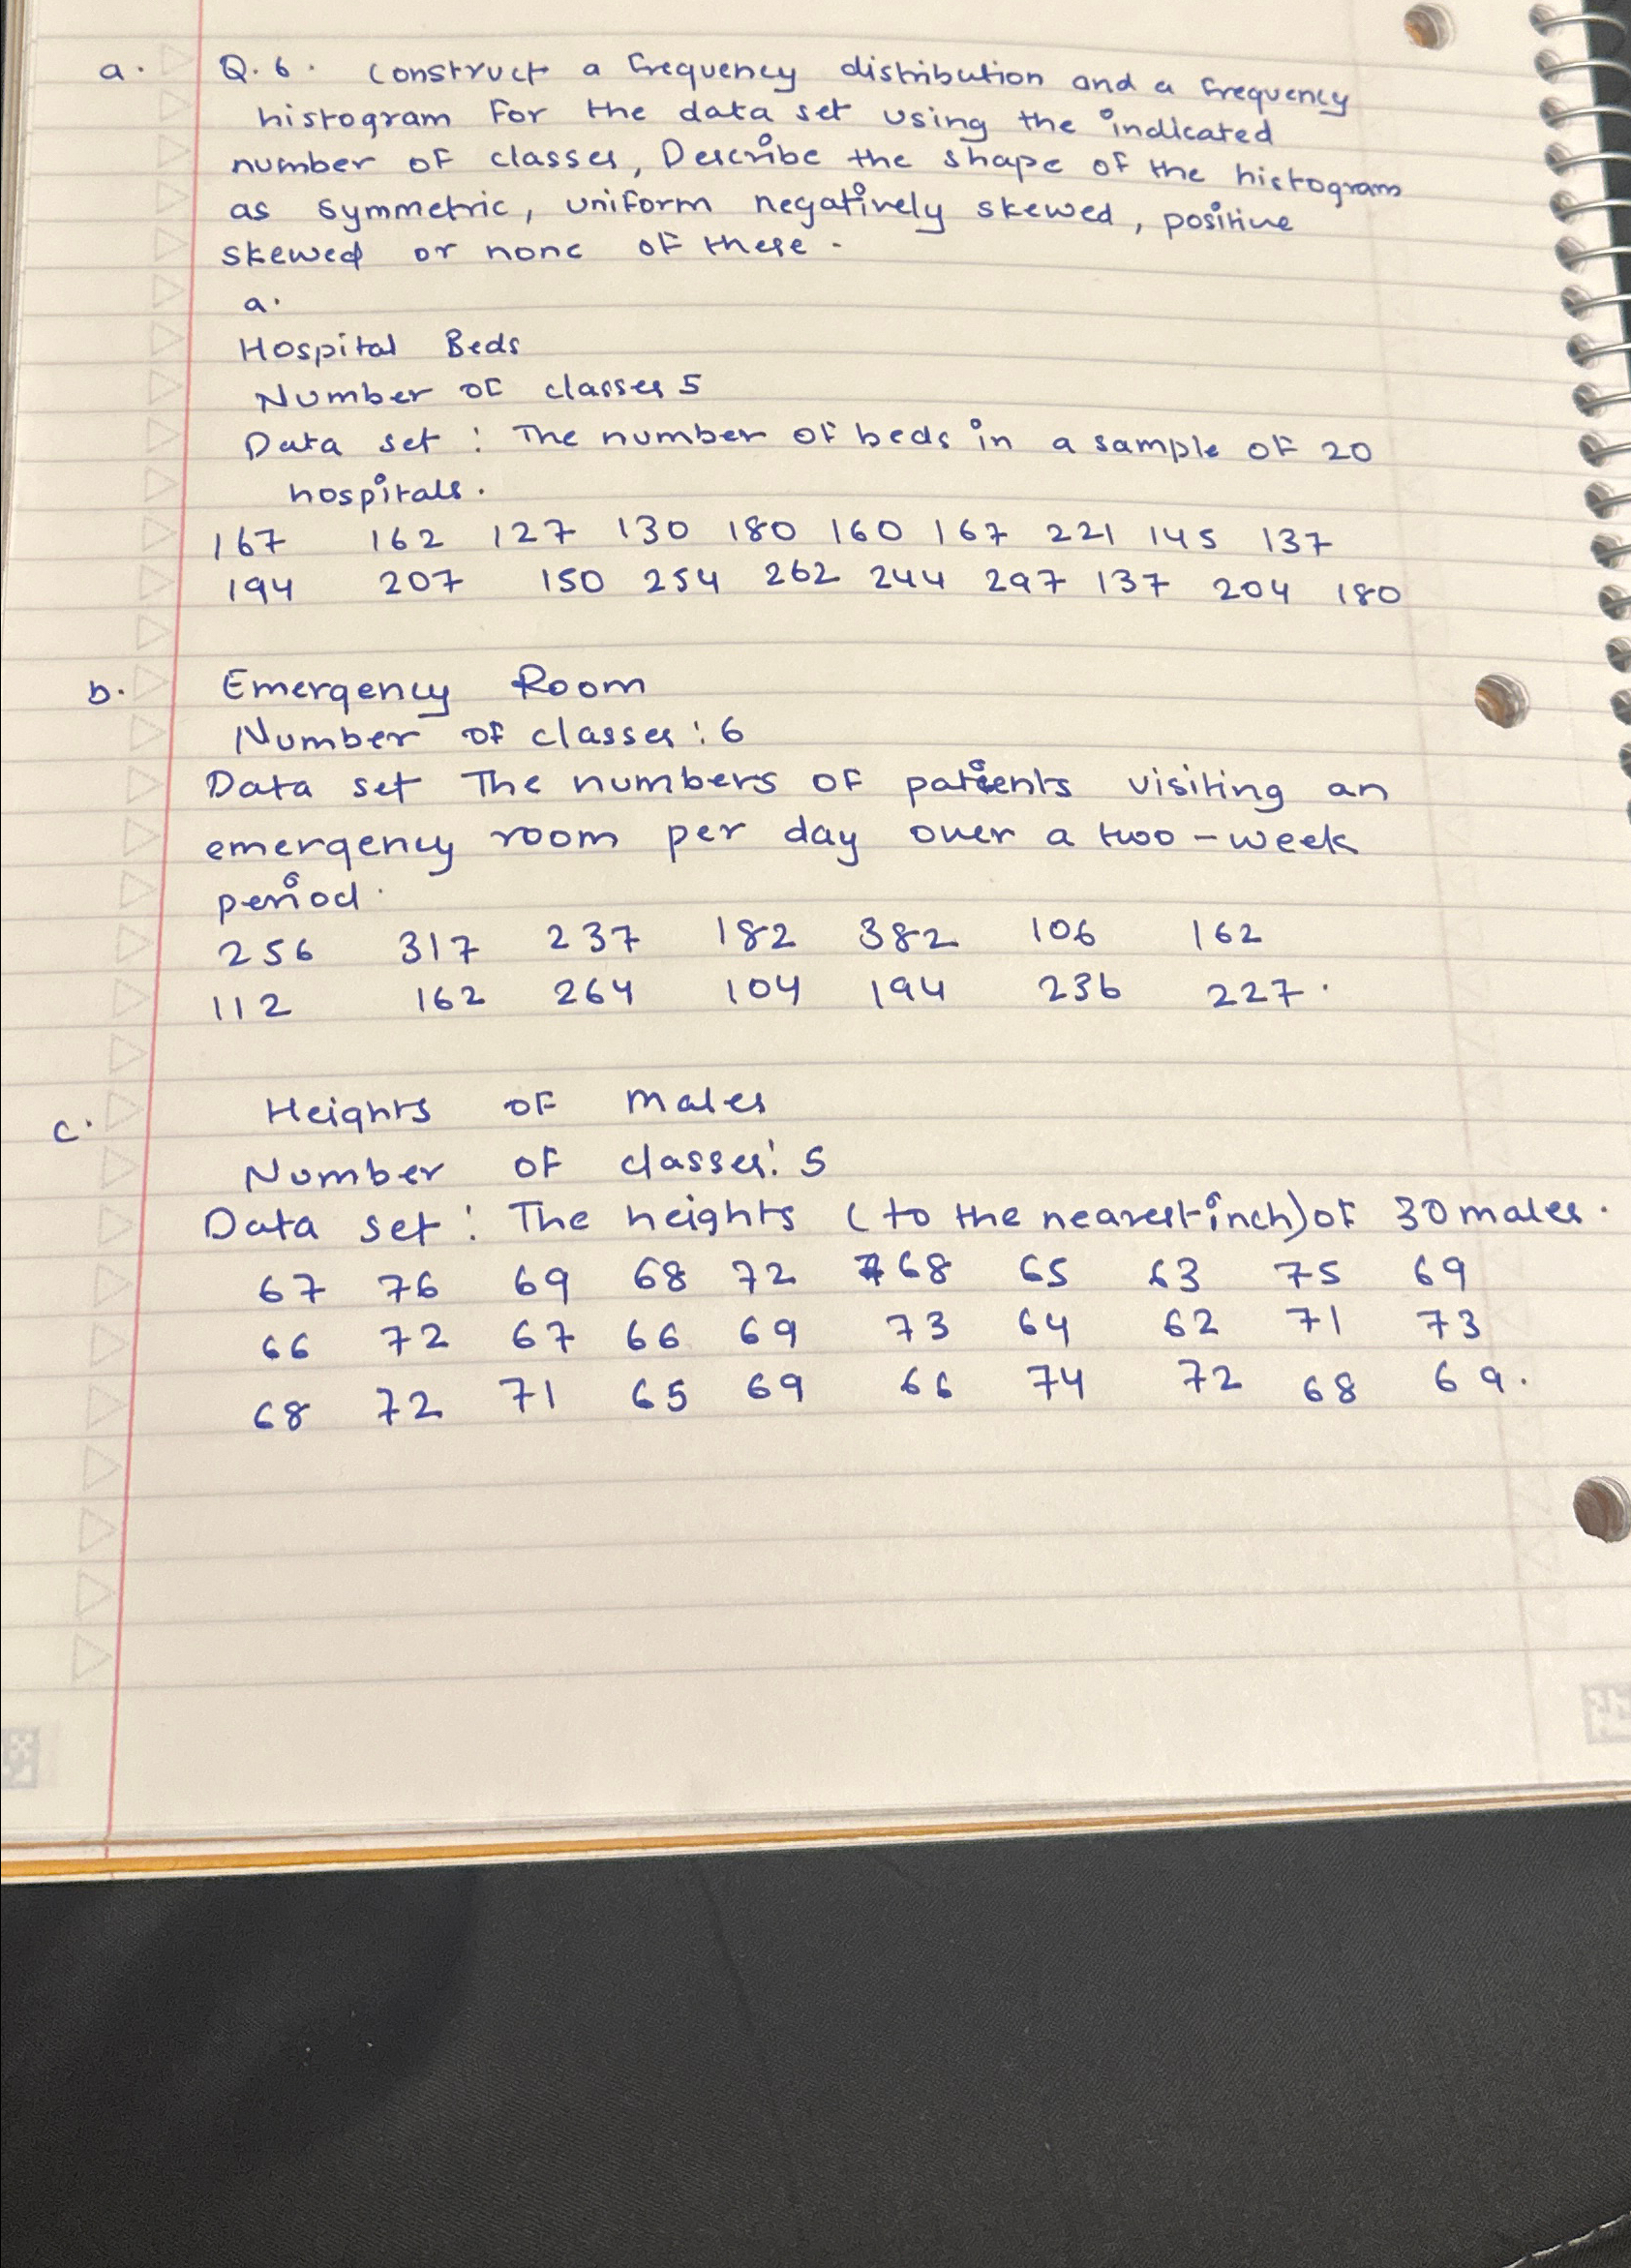 a. Q.6. Construct a frequency distribution and a frequency
histogram for the data set using the indicated
number of classes, Describe the shape of the histogram
as symmetric, uniform negatively skewed, positive
skewed or none of these.
a.
Hospital Beds
Number of classes 5
Data set : The number of beds in a sample of 20
hospitals.
167 162 127 130 180 160 167 221 145 137
194 207 150 254 262 244 297 137 204 180
b. Emergency Room
Number of classes : 6
Data set The numbers of patients visiting an
emergency room per day over a two-week
period.
256 317 237 182 382 106 162
112 162 264 104 194 236 227.
c. Heights of males
Number of classes: 5
Data set : The heights (to the nearest inch) of 30 males.
67 76 69 68 72 68 65 63 75 69
66 72 67 66 69 73 64 62 71 73
68 72 71 65 69 66 74 72 68 69.